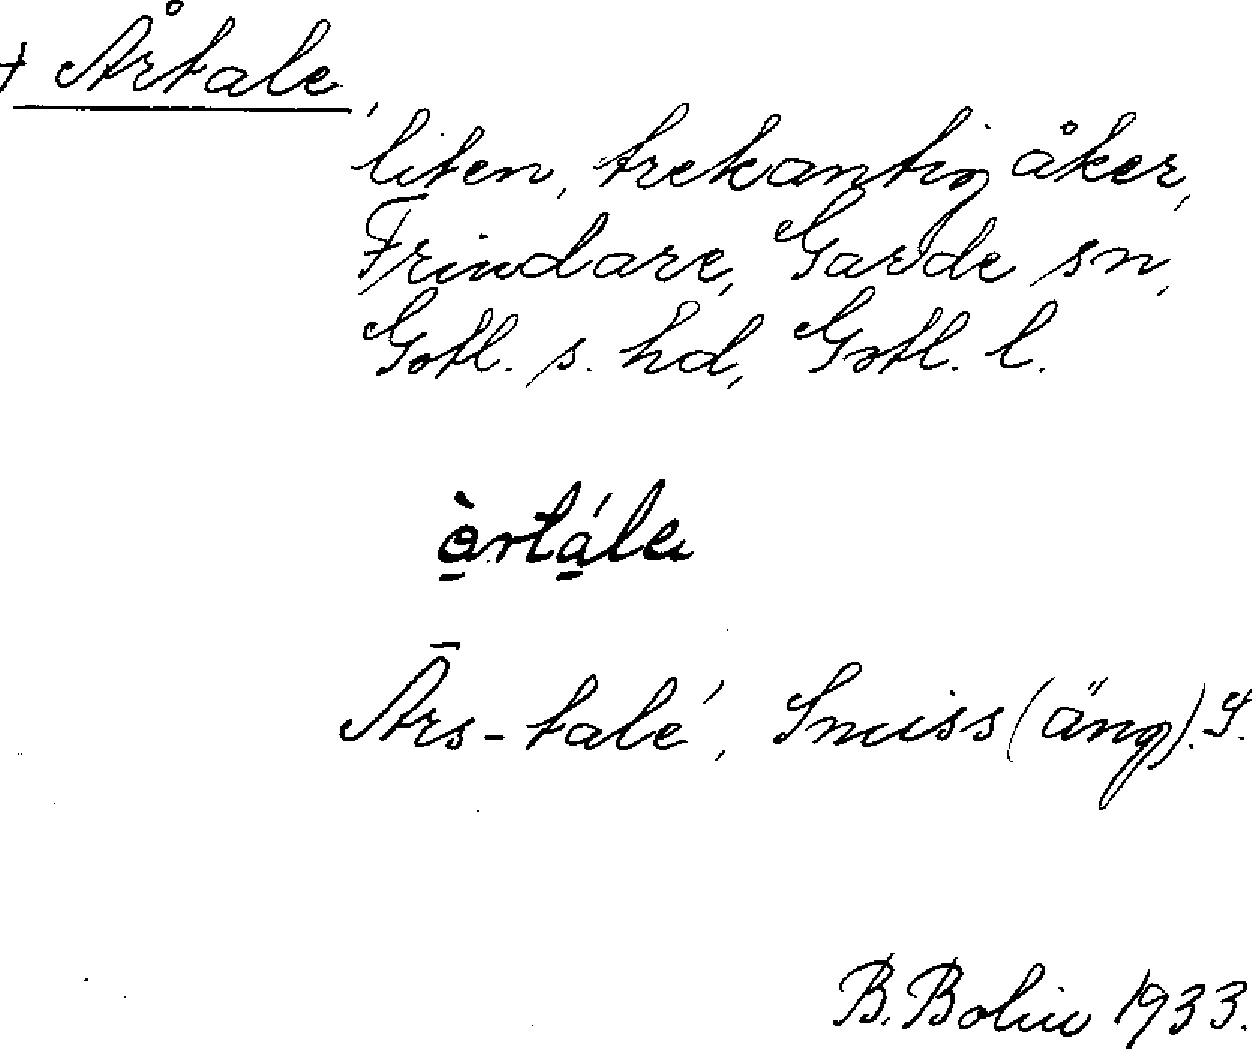 + Årtale,
liten, trekantig åker,
Frindare, Garde sn,
Gotl. s. hd, Gotl. l.
Ārs-talé, Smiss (äng). S.
B. Bolin 1933.